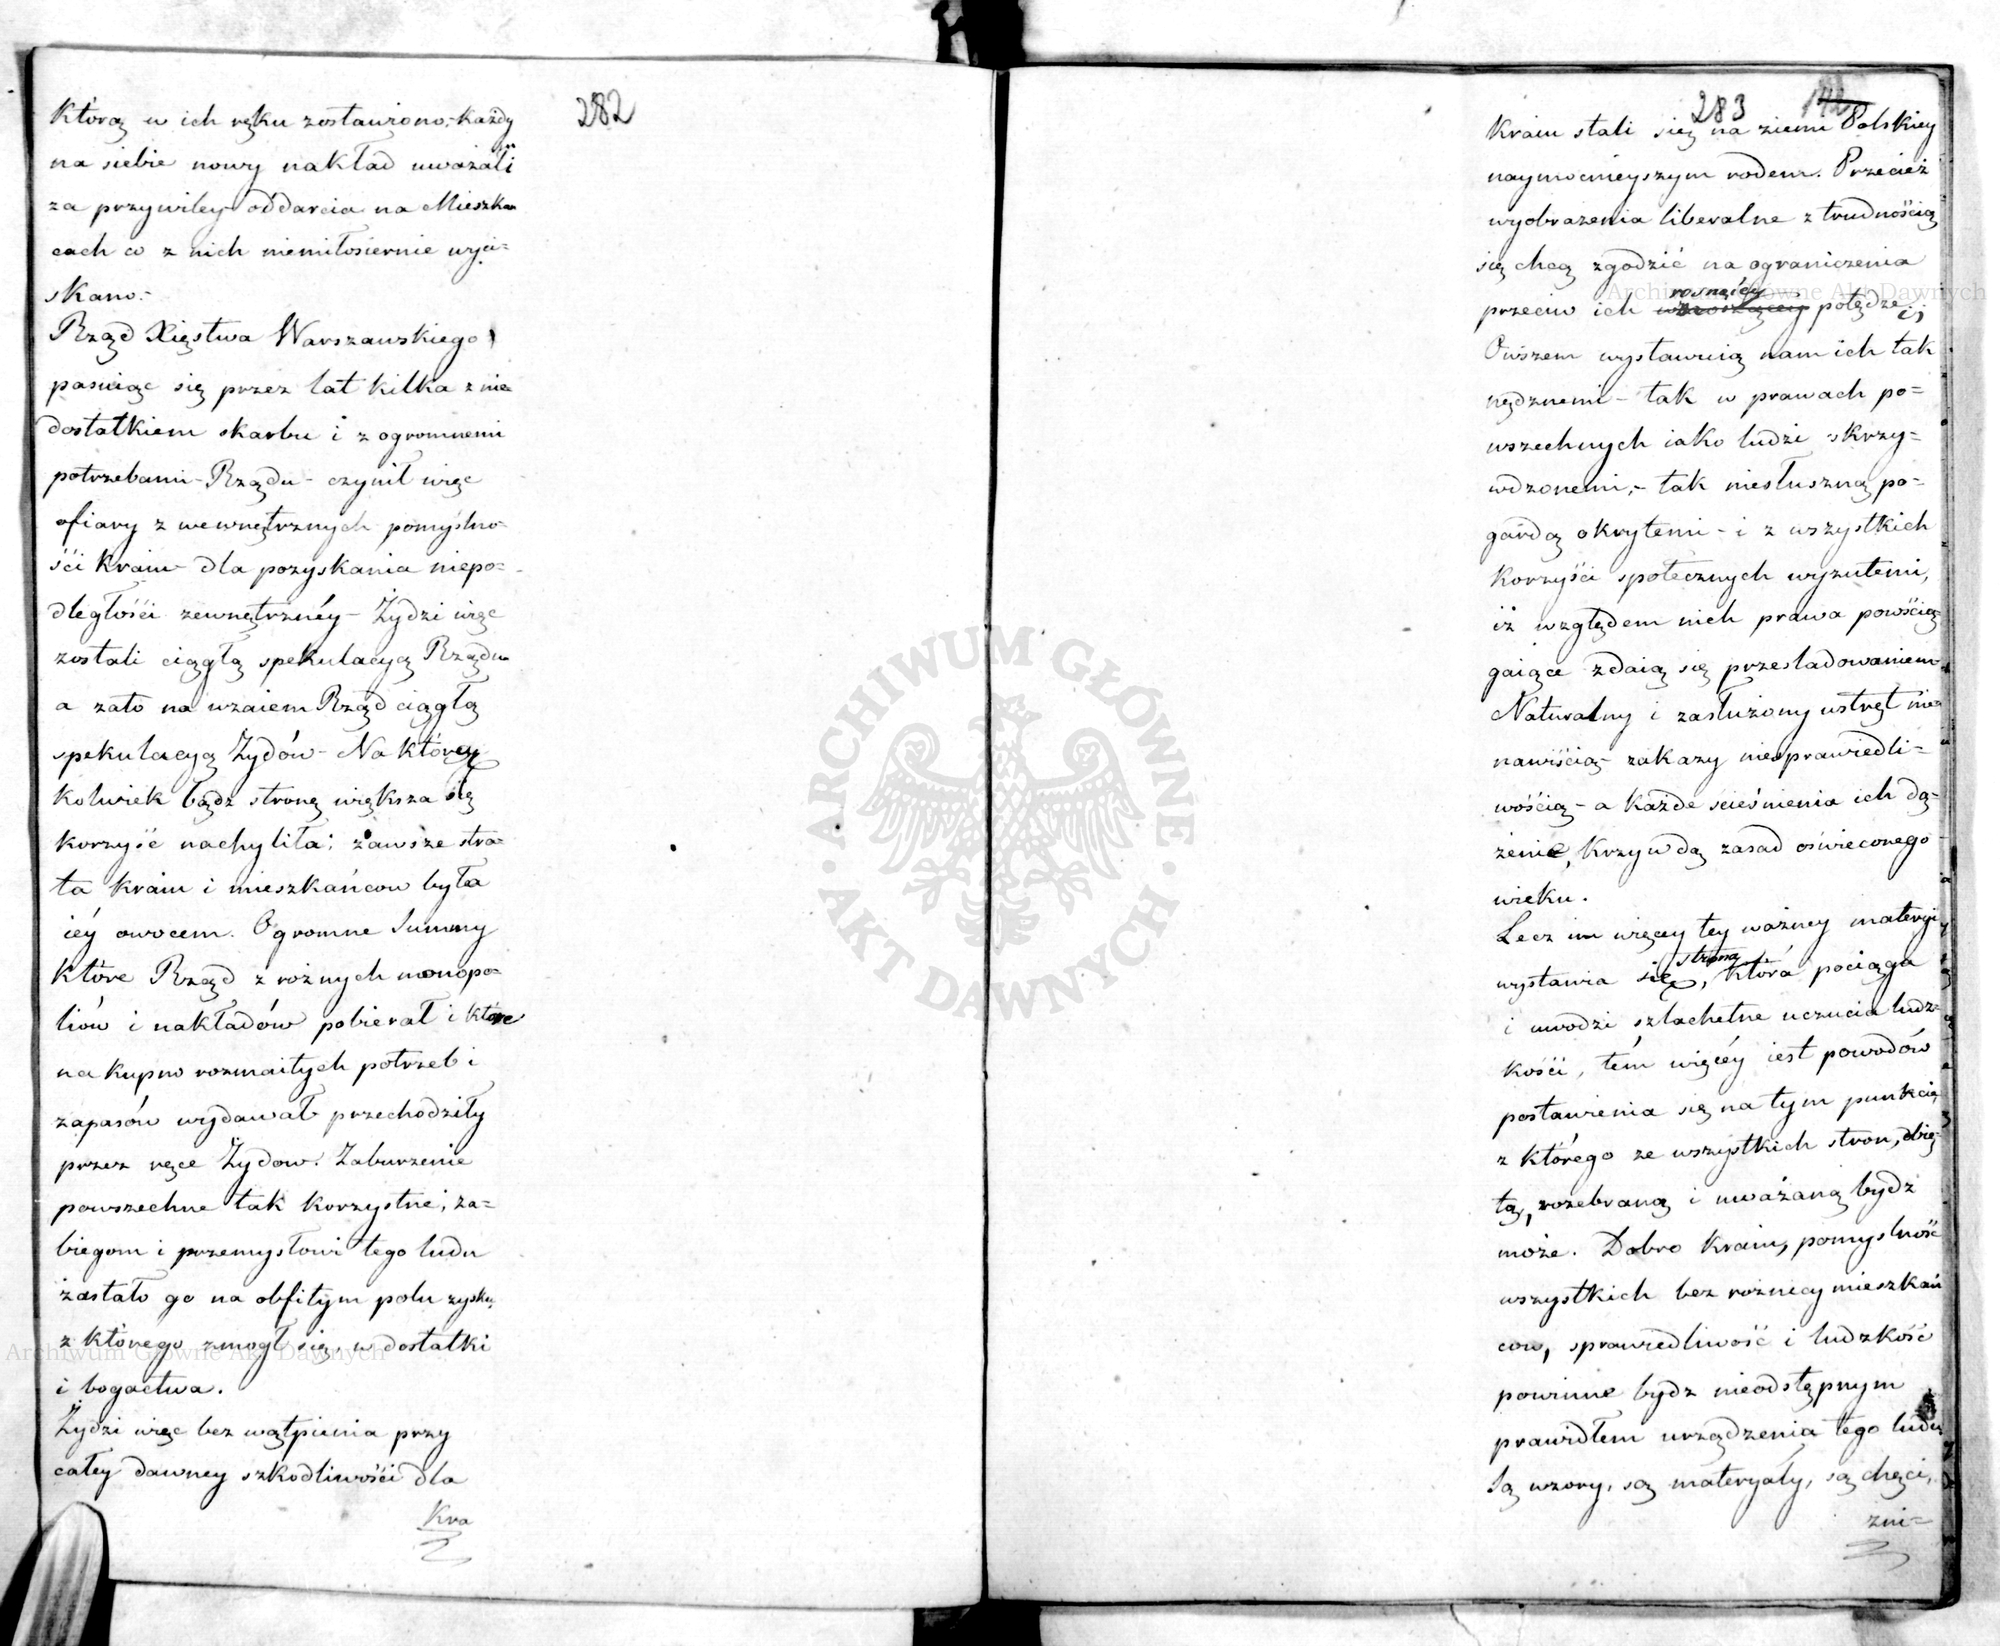 282
Którą w ich ręku zostawiono,-każdy
na siebie nowy nakład uważali
za przywiley oddarcia na Mieszkan
cach co z nich niemiłosiernie wyci=
skano.-
Rząd Xięstwa Warszawskiego
pasuiąc się przez lat kilka z nie
dostatkiem skarbu i z ogromnemi
potrzebami - Rządu - czynił więc
ofiary z wewnętrznych pomyślno=
ści Kraiu - dla pozyskania niepo=
dległości zewnętrznéy - Żydzi więc
zostali ciągłą spekulacyą Rządu
a zato na wzaiem Rząd ciągłą
spekulacyą Żydów - Na którey
kolwiek bądz stronę większa się
korzyść nachyliła; zawsze stra=
ta kraiu i mieszkańcow była
iéy owocem. Ogromne Summy
które Rząd z rożnych monopo=
liów i nakładów pobierał i które
na kupno rozmaitych potrzeb i
zapasów wydawał przechodziły
przez ręce Żydow. Zaburzenie
powszechne tak korzystne, za=
biegom i przemysłowi tego ludu
zastało go na obfitym polu zysku,
z którego zmogł się, w dostatki
i bogactwa.
Żydzi więc bez wątpienia przy
całey dawney szkodliwości dla
Kra
283
142
Kraiu stali się na ziemi Polskiey
naymocnieyszym rodem. Przecież
wyobrazenia liberalne z trudnością
się chcą zgodzić na ograniczenia
rosnącey
przeciw ich wzrostaiącey potędze;
Owszem wystawuią nam ich tak
nędznemi - tak w prawach po=
wszechnych iako ludzi skrzy=
wdzonemi,- tak niesłuszną po=
gardą okrytemi - i z wszystkich
korzyści społecznych wyzutemi,
iż względem nich prawa powścią=
gaiące zdaią się przesladowaniem
Naturalny i zasłużony wstręt nie=
nawiścią - zakazy niesprawiedli=
wością - a każde scieśnienia ich dą=
żenie, krzywdą zasad oświeconego
wieku.
Lecz im więcey tey ważney materyi
stroną
wystawia się, która pociąga
i uwodzi szlachetne uczucia ludz=
kości, tém więcéy iest powodów
postawienia się na tym punkcie
z którego ze wszystkich stron, obię=
tą, rozebraną i uważaną bydz
może. Dobro Kraiu, pomyslność
wszystkich bez rożnicy mieszkań
cow, sprawiedliwość i ludzkość
powinne bydz nieodstępnym
prawidłem urządzenia tego ludu
Są wzory, są materyały, są chęci,
zni=
ARCHIWUM GŁÓWNE · AKT DAWNYCH ·
Archiwum Główne Akt Dawnych
Archiwum Główne Akt Dawnych